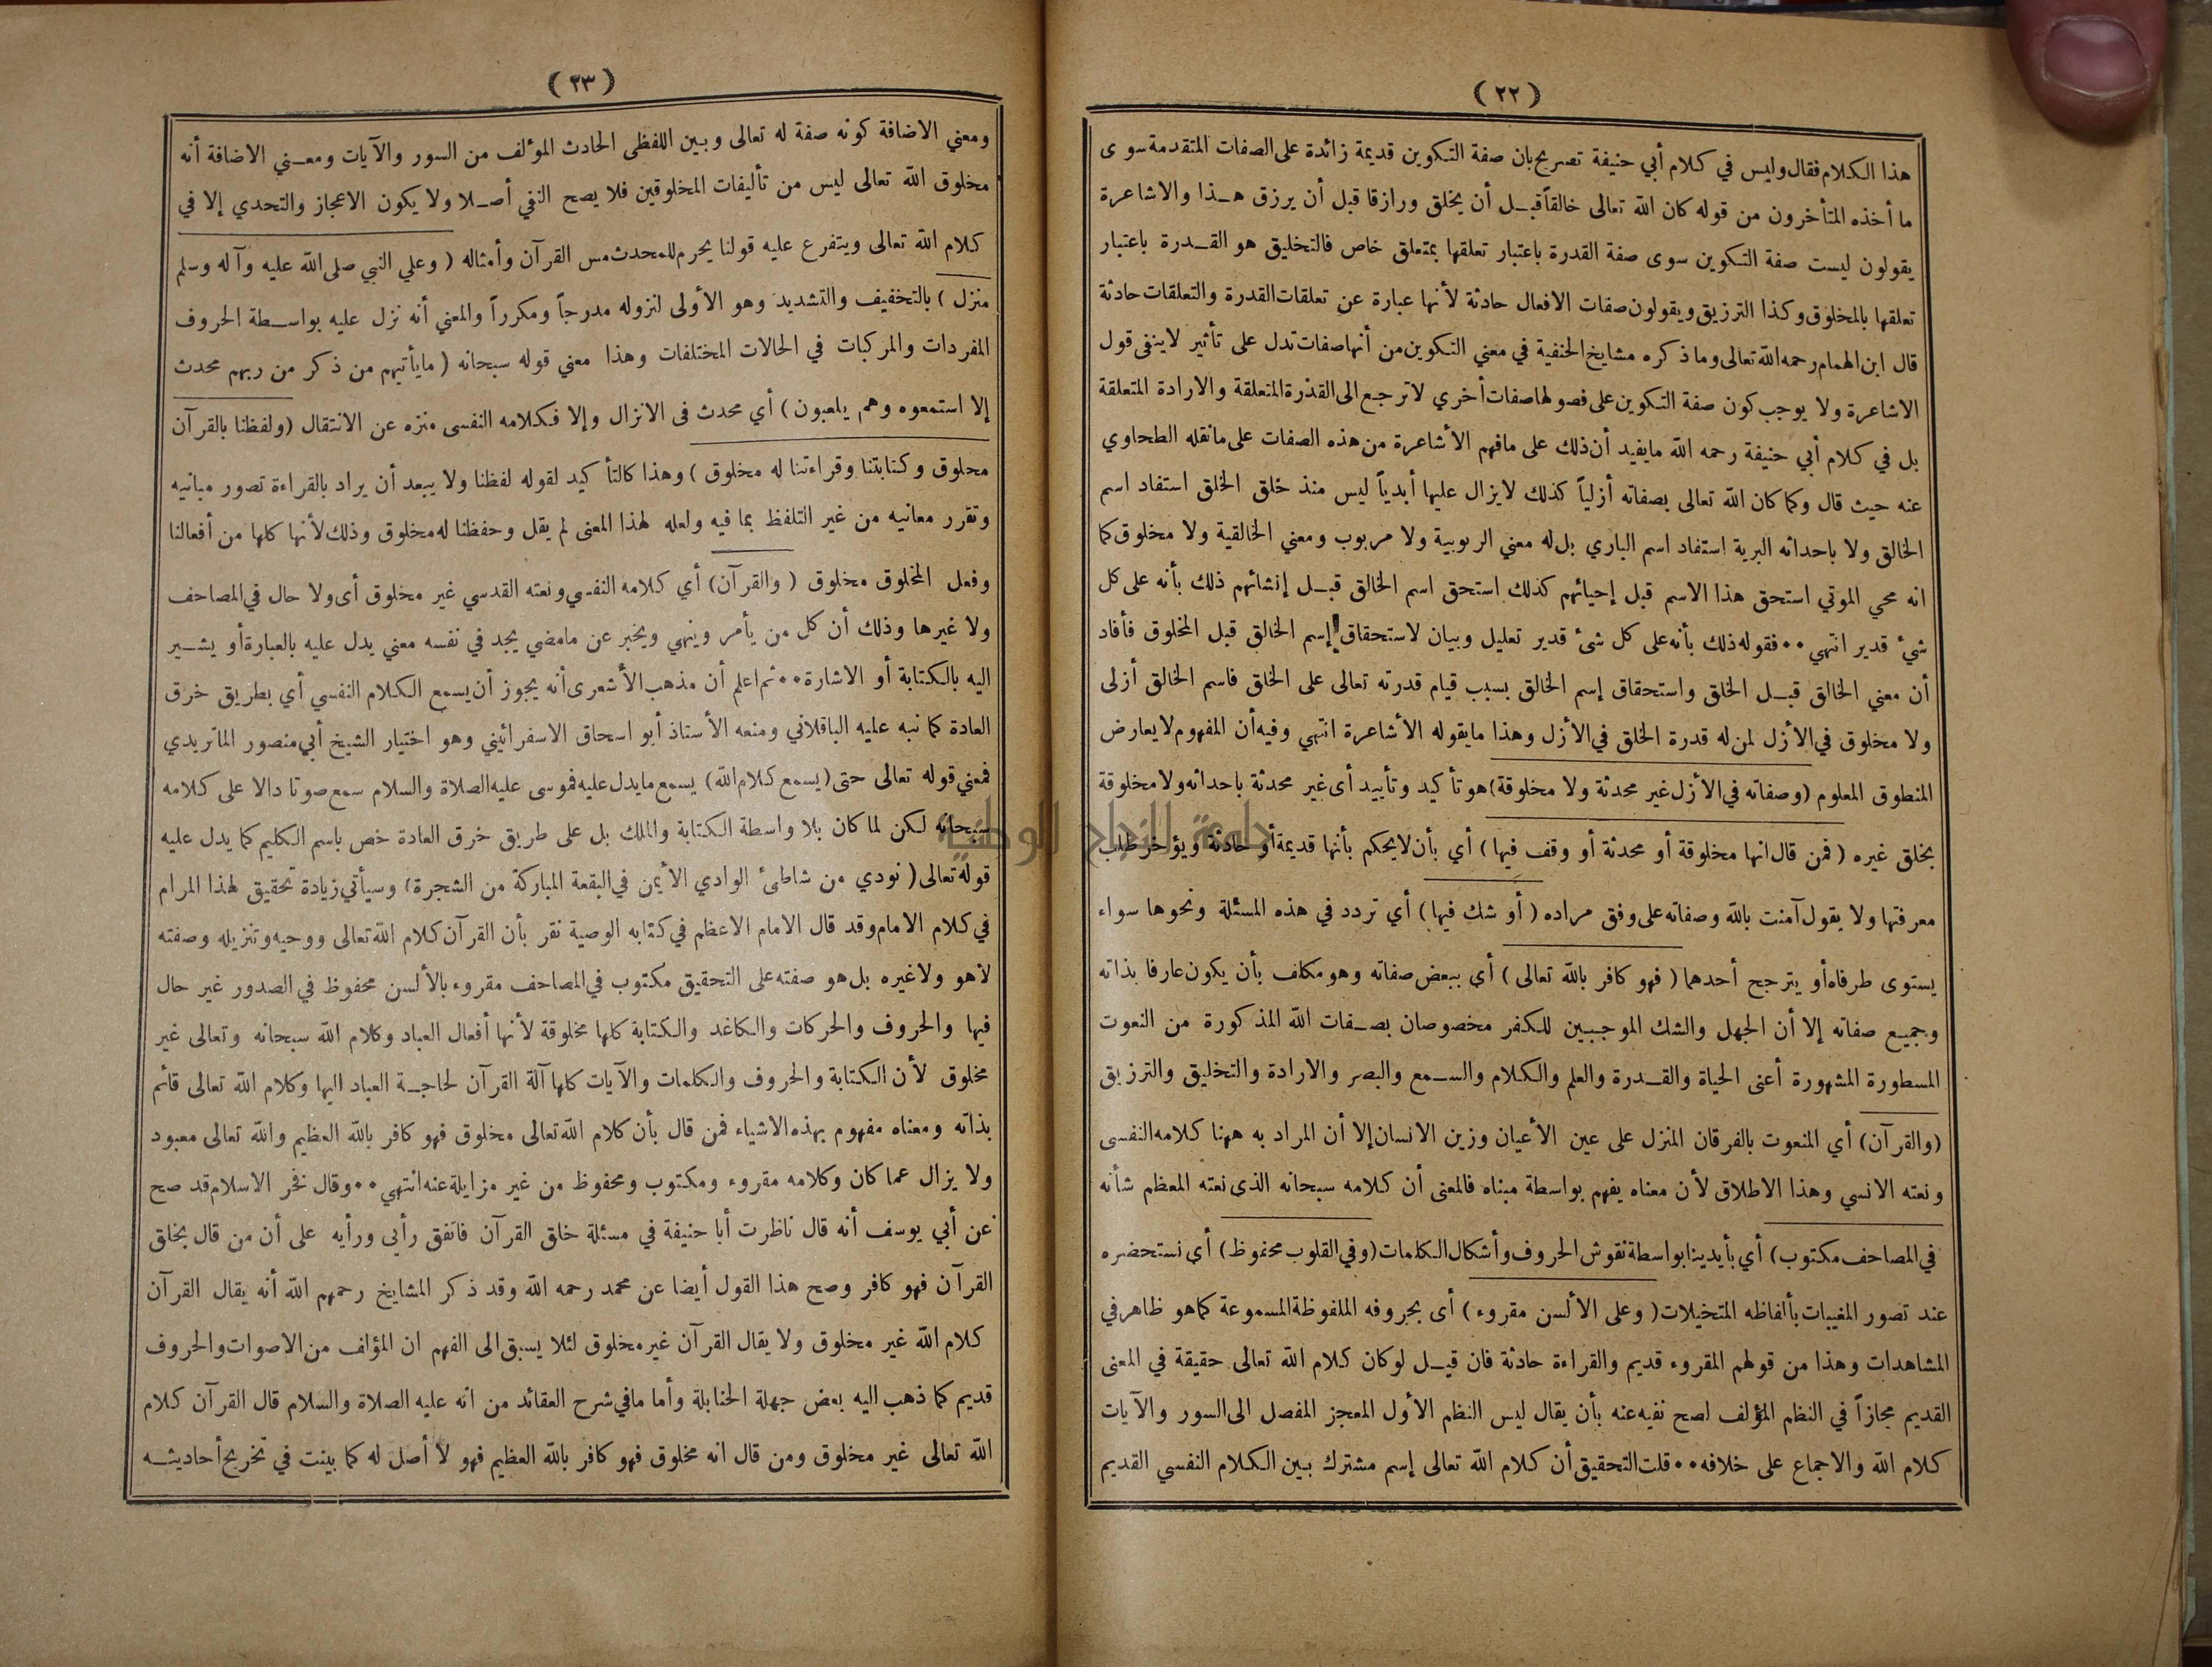 ( ٢٢ )
هذا الكلام فقال وليس في كلام أبي حنيفة تصريح بان صفة التكوين قديمة زائدة على الصفات المتقدمة سوى
ما أخذه المتأخرون من قوله كان الله تعالى خالقاً قبل أن يخلق ورازقا قبل أن يرزق هذا والاشاعرة
يقولون ليست صفة التكوين سوى صفة القدرة باعتبار تعلقها بمتعلق خاص فالتخليق هو القدرة باعتبار
تعلقها بالمخلوق وكذا الترزيق ويقولون صفات الافعال حادثة لأنها عبارة عن تعلقات القدرة والتعلقات حادثة
قال ابن الهمام رحمه الله تعالى وما ذكره مشايخ الحنفية في معني التكوين من أنها صفات تدل على تأثير لا ينفى قول
الاشاعرة ولا يوجب كون صفة التكوين على فصولها صفات أخري لا ترجع الى القدرة المتعلقة والارادة المتعلقة
بل في كلام أبي حنيفة رحمه الله ما يفيد أن ذلك على ما فهم الأشاعرة من هذه الصفات على ما نقله الطحاوي
عنه حيث قال وكما كان الله تعالى بصفاته أزلياً كذلك لا يزال عليها أبدياً ليس منذ خلق الخلق استفاد اسم
الخالق ولا باحداثه البرية استفاد اسم الباري بل له معني الربوبية ولا مربوب ومعني الخالقية ولا مخلوق كما
انه محي الموتي استحق هذا الاسم قبل إحيائهم كذلك استحق اسم الخالق قبل إنشائهم ذلك بأنه على كل
شئ قدير انتهي •• فقوله ذلك بأنه على كل شئ قدير تعليل وبيان لاستحقاق إسم الخالق قبل المخلوق فأفاد
أن معني الخالق قبل الخلق واستحقاق إسم الخالق بسبب قيام قدرته تعالى على الخلق فاسم الخالق أزلى
ولا مخلوق في الأزل لمن له قدرة الخلق في الأزل وهذا ما يقوله الأشاعرة انتهي وفيه أن المفهوم لا يعارض
المنطوق المعلوم (وصفاته في الأزل غير محدثة ولا مخلوقة) هو تأكيد وتأييد أى غير محدثة باحداثه ولا مخلوقة
بخلق غيره ( فمن قال انها مخلوقة أو محدثة أو وقف فيها ) أي بأن لا يحكم بأنها قديمة أو حادثة ويؤخر طلب
معرفتها ولا يقول آمنت بالله وصفاته على وفق مراده ( أو شك فيها ) أي تردد في هذه المسئلة ونحوها سواء
يستوى طرفاه أو يترجح أحدهما ( فهو كافر بالله تعالى ) أي ببعض صفاته وهو مكلف بأن يكون عارفا بذاته
وجميع صفاته إلا أن الجهل والشك الموجبين للكفر مخصوصان بصفات الله المذكورة من النعوت
المسطورة المشهورة أعنى الحياة والقدرة والعلم والكلام والسمع والبصر والارادة والتخليق والترزيق
(والقرآن) أي المنعوت بالفرقان المنزل على عين الأعيان وزين الانسان إلا أن المراد به ههنا كلامه النفسى
ونعته الانسي وهذا الاطلاق لأن معناه يفهم بواسطة مبناه فالمعنى أن كلامه سبحانه الذى نعته المعظم شأنه
في المصاحف مكتوب ) أي بأيدينا بواسطة نقوش الحروف وأشكال الكلمات (وفي القلوب محفوظ ) أى نستحضره
عند تصور المغيبات بألفاظه المتخيلات ( وعلى الألسن مقروء ) أى بحروفه الملفوظة المسموعة كما هو ظاهر في
المشاهدات وهذا من قولهم المقروء قديم والقراءة حادثة فان قيل لو كان كلام الله تعالى حقيقة في المعنى
القديم مجازاً في النظم المؤلف لصح نفيه عنه بأن يقال ليس النظم الأول المعجز المفصل الى السور والآيات
كلام الله والاجماع على خلافه •• قلت التحقيق أن كلام الله تعالى إسم مشترك بين الكلام النفسي القديم
( ٢٣ )
ومعني الاضافة كونه صفة له تعالى وبين اللفظى الحادث المؤلف من السور والآيات ومعني الاضافة أنه
مخلوق الله تعالى ليس من تأليفات المخلوقين فلا يصح النفي أصلا ولا يكون الاعجاز والتحدي إلا في
كلام الله تعالى ويتفرع عليه قولنا يحرم للمحدث مس القرآن وأمثاله ( وعلي النبي صلى الله عليه وآله وسلم
منزل ) بالتخفيف والتشديد وهو الأولى لنزوله مدرجاً ومكرراً والمعني أنه نزل عليه بواسطة الحروف
المفردات والمركبات في الحالات المختلفات وهذا معني قوله سبحانه ( ما يأتيهم من ذكر من ربهم محدث
إلا استمعوه وهم يلعبون ) أي محدث فى الانزال وإلا فكلامه النفسى منزه عن الانتقال (ولفظنا بالقرآن
مخلوق وكتابتنا وقراءتنا له مخلوق ) وهذا كالتأكيد لقوله لفظنا ولا يبعد أن يراد بالقراءة تصور مبانيه
وتقرر معانيه من غير التلفظ بما فيه ولعله لهذا المعنى لم يقل وحفظنا له مخلوق وذلك لأنها كلها من أفعالنا
وفعل المخلوق مخلوق ( والقرآن) أي كلامه النفسي ونعته القدسي غير مخلوق أى ولا حال في المصاحف
ولا غيرها وذلك أن كل من يأمر وينهي ويخبر عن مامضي يجد في نفسه معني يدل عليه بالعبارة أو يشير
اليه بالكتابة أو الاشارة •• ثم اعلم أن مذهب الأشعرى أنه يجوز أن يسمع الكلام النفسي أي بطريق خرق
العادة كما نبه عليه الباقلاني ومنعه الأستاذ أبو اسحاق الاسفرائيني وهو اختيار الشيخ أبي منصور الماتريدي
فمعني قوله تعالى حتى ( يسمع كلام الله) يسمع ما يدل عليه فموسى عليه الصلاة والسلام سمع صوتا دالا على كلامه
سبحانه لكن لما كان بلا واسطة الكتابة والملك بل على طريق خرق العادة خص باسم الكليم كما يدل عليه
قوله تعالى ( نودي من شاطئ الوادي الأيمن في البقعة المباركة من الشجرة) وسيأتي زيادة تحقيق لهذا المرام
في كلام الامام وقد قال الامام الاعظم في كتابه الوصية نقر بأن القرآن كلام الله تعالى ووحيه وتنزيله وصفته
لاهو ولا غيره بل هو صفته على التحقيق مكتوب في المصاحف مقروء بالألسن محفوظ في الصدور غير حال
فيها والحروف والحركات والكاغد والكتابة كلها مخلوقة لأنها أفعال العباد وكلام الله سبحانه وتعالى غير
مخلوق لأن الكتابة والحروف والكلمات والآيات كلها آلة القرآن لحاجة العباد اليها وكلام الله تعالى قائم
بذاته ومعناه مفهوم بهذه الاشياء فمن قال بأن كلام الله تعالى مخلوق فهو كافر بالله العظيم والله تعالى معبود
ولا يزال عما كان وكلامه مقروء ومكتوب ومحفوظ من غير مزايلة عنه انتهي •• وقال فخر الاسلام قد صح
عن أبي يوسف أنه قال ناظرت أبا حنيفة في مسئلة خلق القرآن فاتفق رأيى ورأيه على أن من قال بخلق
القرآن فهو كافر وصح هذا القول أيضا عن محمد رحمه الله وقد ذكر المشايخ رحمهم الله أنه يقال القرآن
كلام الله غير مخلوق ولا يقال القرآن غير مخلوق لئلا يسبق الى الفهم ان المؤلف من الاصوات والحروف
قديم كما ذهب اليه بعض جهلة الحنابلة وأما مافي شرح العقائد من انه عليه الصلاة والسلام قال القرآن كلام
الله تعالى غير مخلوق ومن قال انه مخلوق فهو كافر بالله العظيم فهو لا أصل له كما بينت في تخريج أحاديثه
جامعة النجاح الوطنية